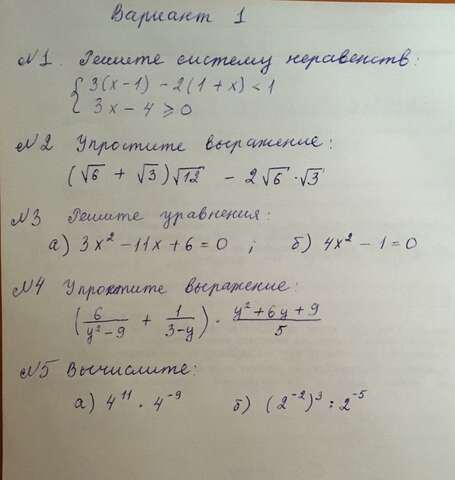 Вариант 1
№1. Решите систему неравенств:
{ 3(x-1) - 2(1+x) < 1
3x - 4 ⩾ 0
№2 Упростите выражение:
(√6 + √3)√12 - 2√6·√3
№3 Решите уравнения:
а) 3x² - 11x + 6 = 0 ; б) 4x² - 1 = 0
№4 Упростите выражение:
(6/(y²-9) + 1/(3-y)) · (y²+6y+9)/5
№5 Вычислите:
а) 4¹¹ · 4⁻⁹ б) (2⁻²)³ : 2⁻⁵